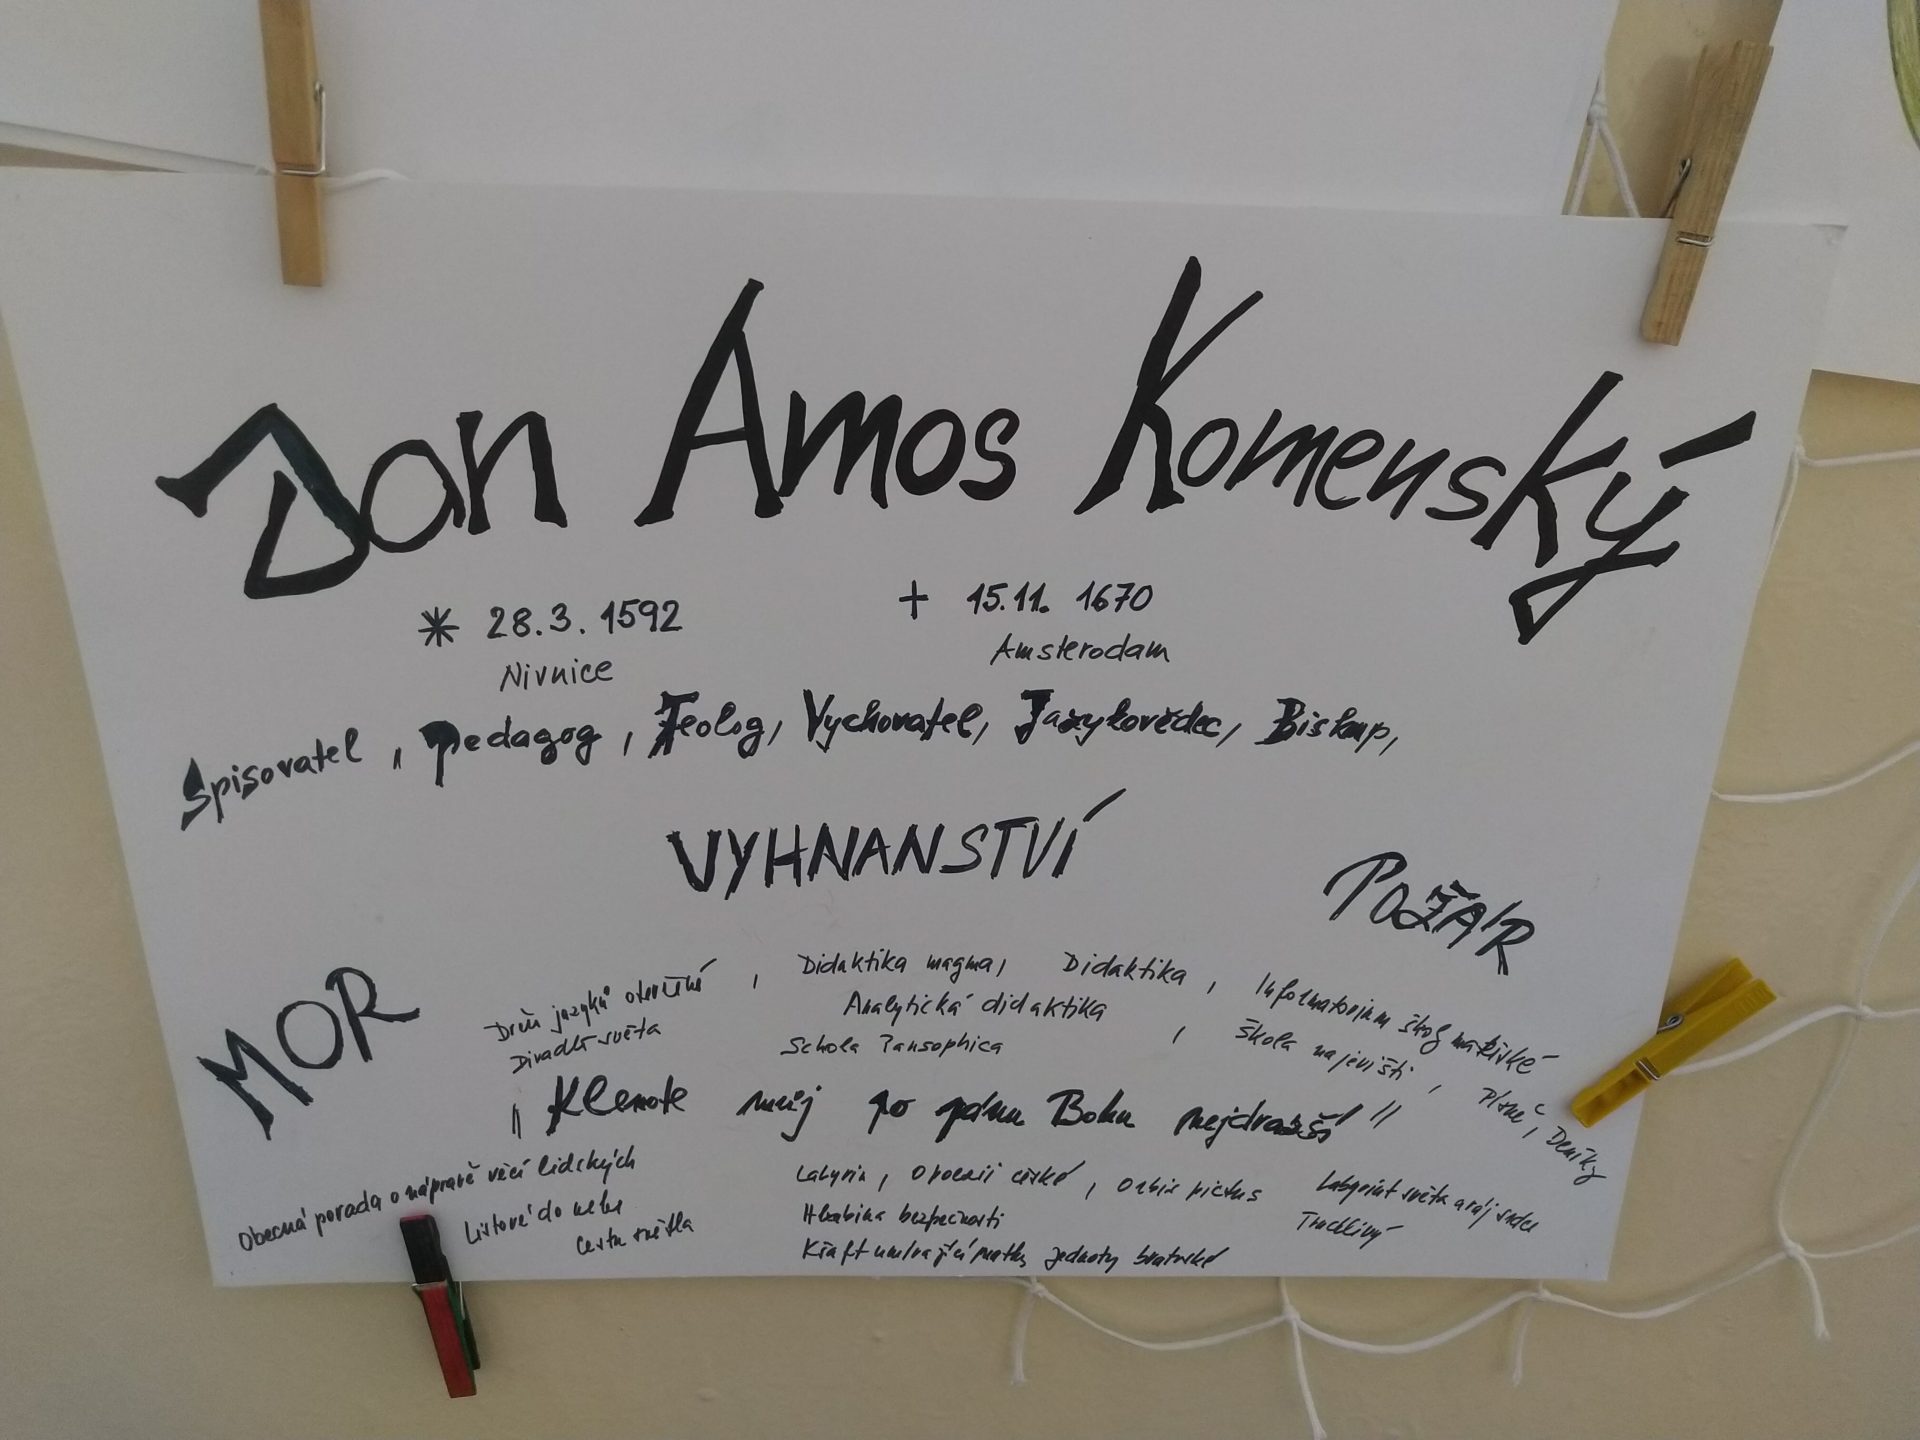 Jan Amos Komenský
* 28.3.1592
Nivnice
+ 15.11. 1670
Amsterodam
Spisovatel, Pedagog, Teolog, Vychovatel, Jazykovědec, Biskup,
VYHNANSTVÍ
POŽÁR
MOR
jazyků
Divadlo světa
, Didaktika magma, Didaktika,
Analytická didaktika
Schola Pansophica
Informatorium škol mateřské
, škola na jevišti, Písně, Deníky
" Klenot můj po pánu Bohu nejdražší "
Obecná porada o nápravě věcí lidských
Listové do nebe
Cesta světla
, O poezii české, Orbis pictus
Hlubina bezpečnosti
Kšaft umírající matky jednoty bratrské
Labyrint světa a ráj srdce
Truchlivý